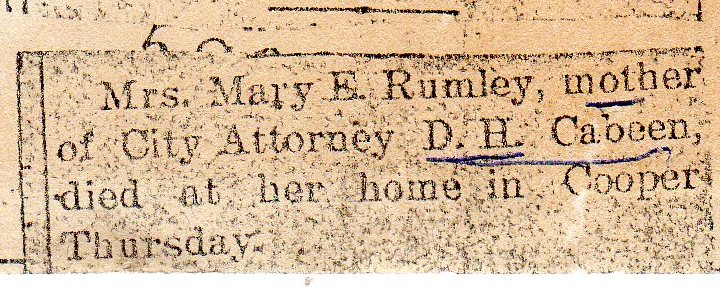 Mrs. Mary E. Rumley, mother
of City Attorney D. H. Cabeen,
died at her home in Cooper
Thursday.